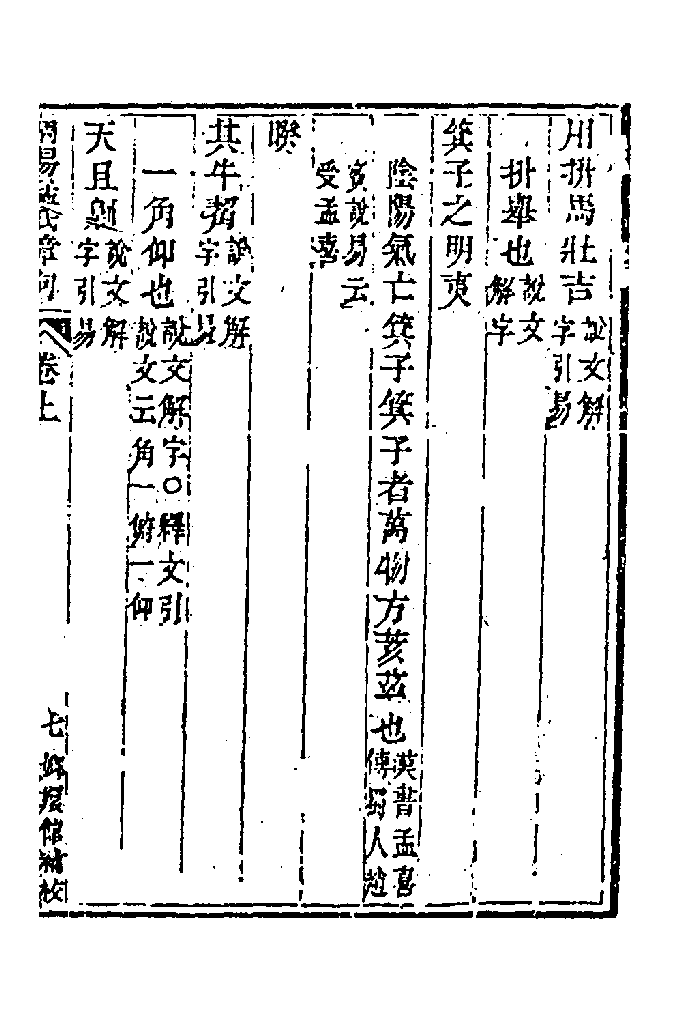 用拚馬壯吉說文解字引易
拚舉也說文解字
箕子之明夷
陰陽氣亡箕子箕子者萬物方荄茲也漢書孟喜傳蜀人趙
賓說易云受孟喜
睽
其牛觢說文解字引易
一角仰也說文解字○釋文引說文云角一俯一仰
天且劓說文解字引易
周易孟氏章句 卷上 七 嫏嬛館補校